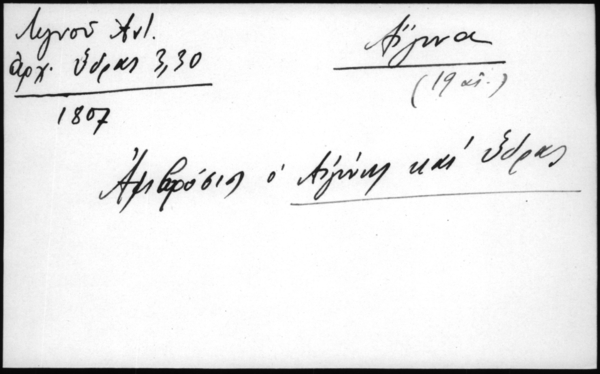 Λιγνοῦ Ἀντ.
Ἀρχ. Ὕδρας 3,30
1807
Αἴγινα
(19 αἰ.)
Ἀμβρόσιος ὁ Αἰγίνης καί Ὕδρας